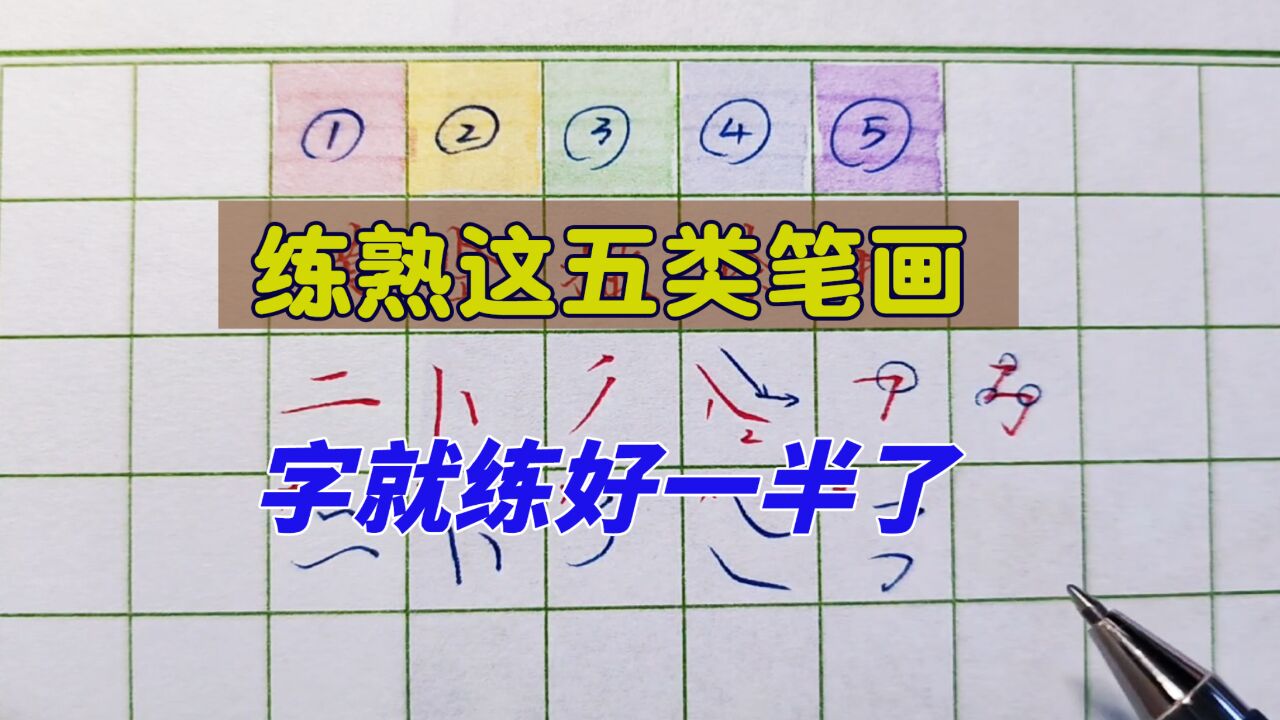 ① ② ③ ④ ⑤
练熟这五类笔画
字就练好一半了